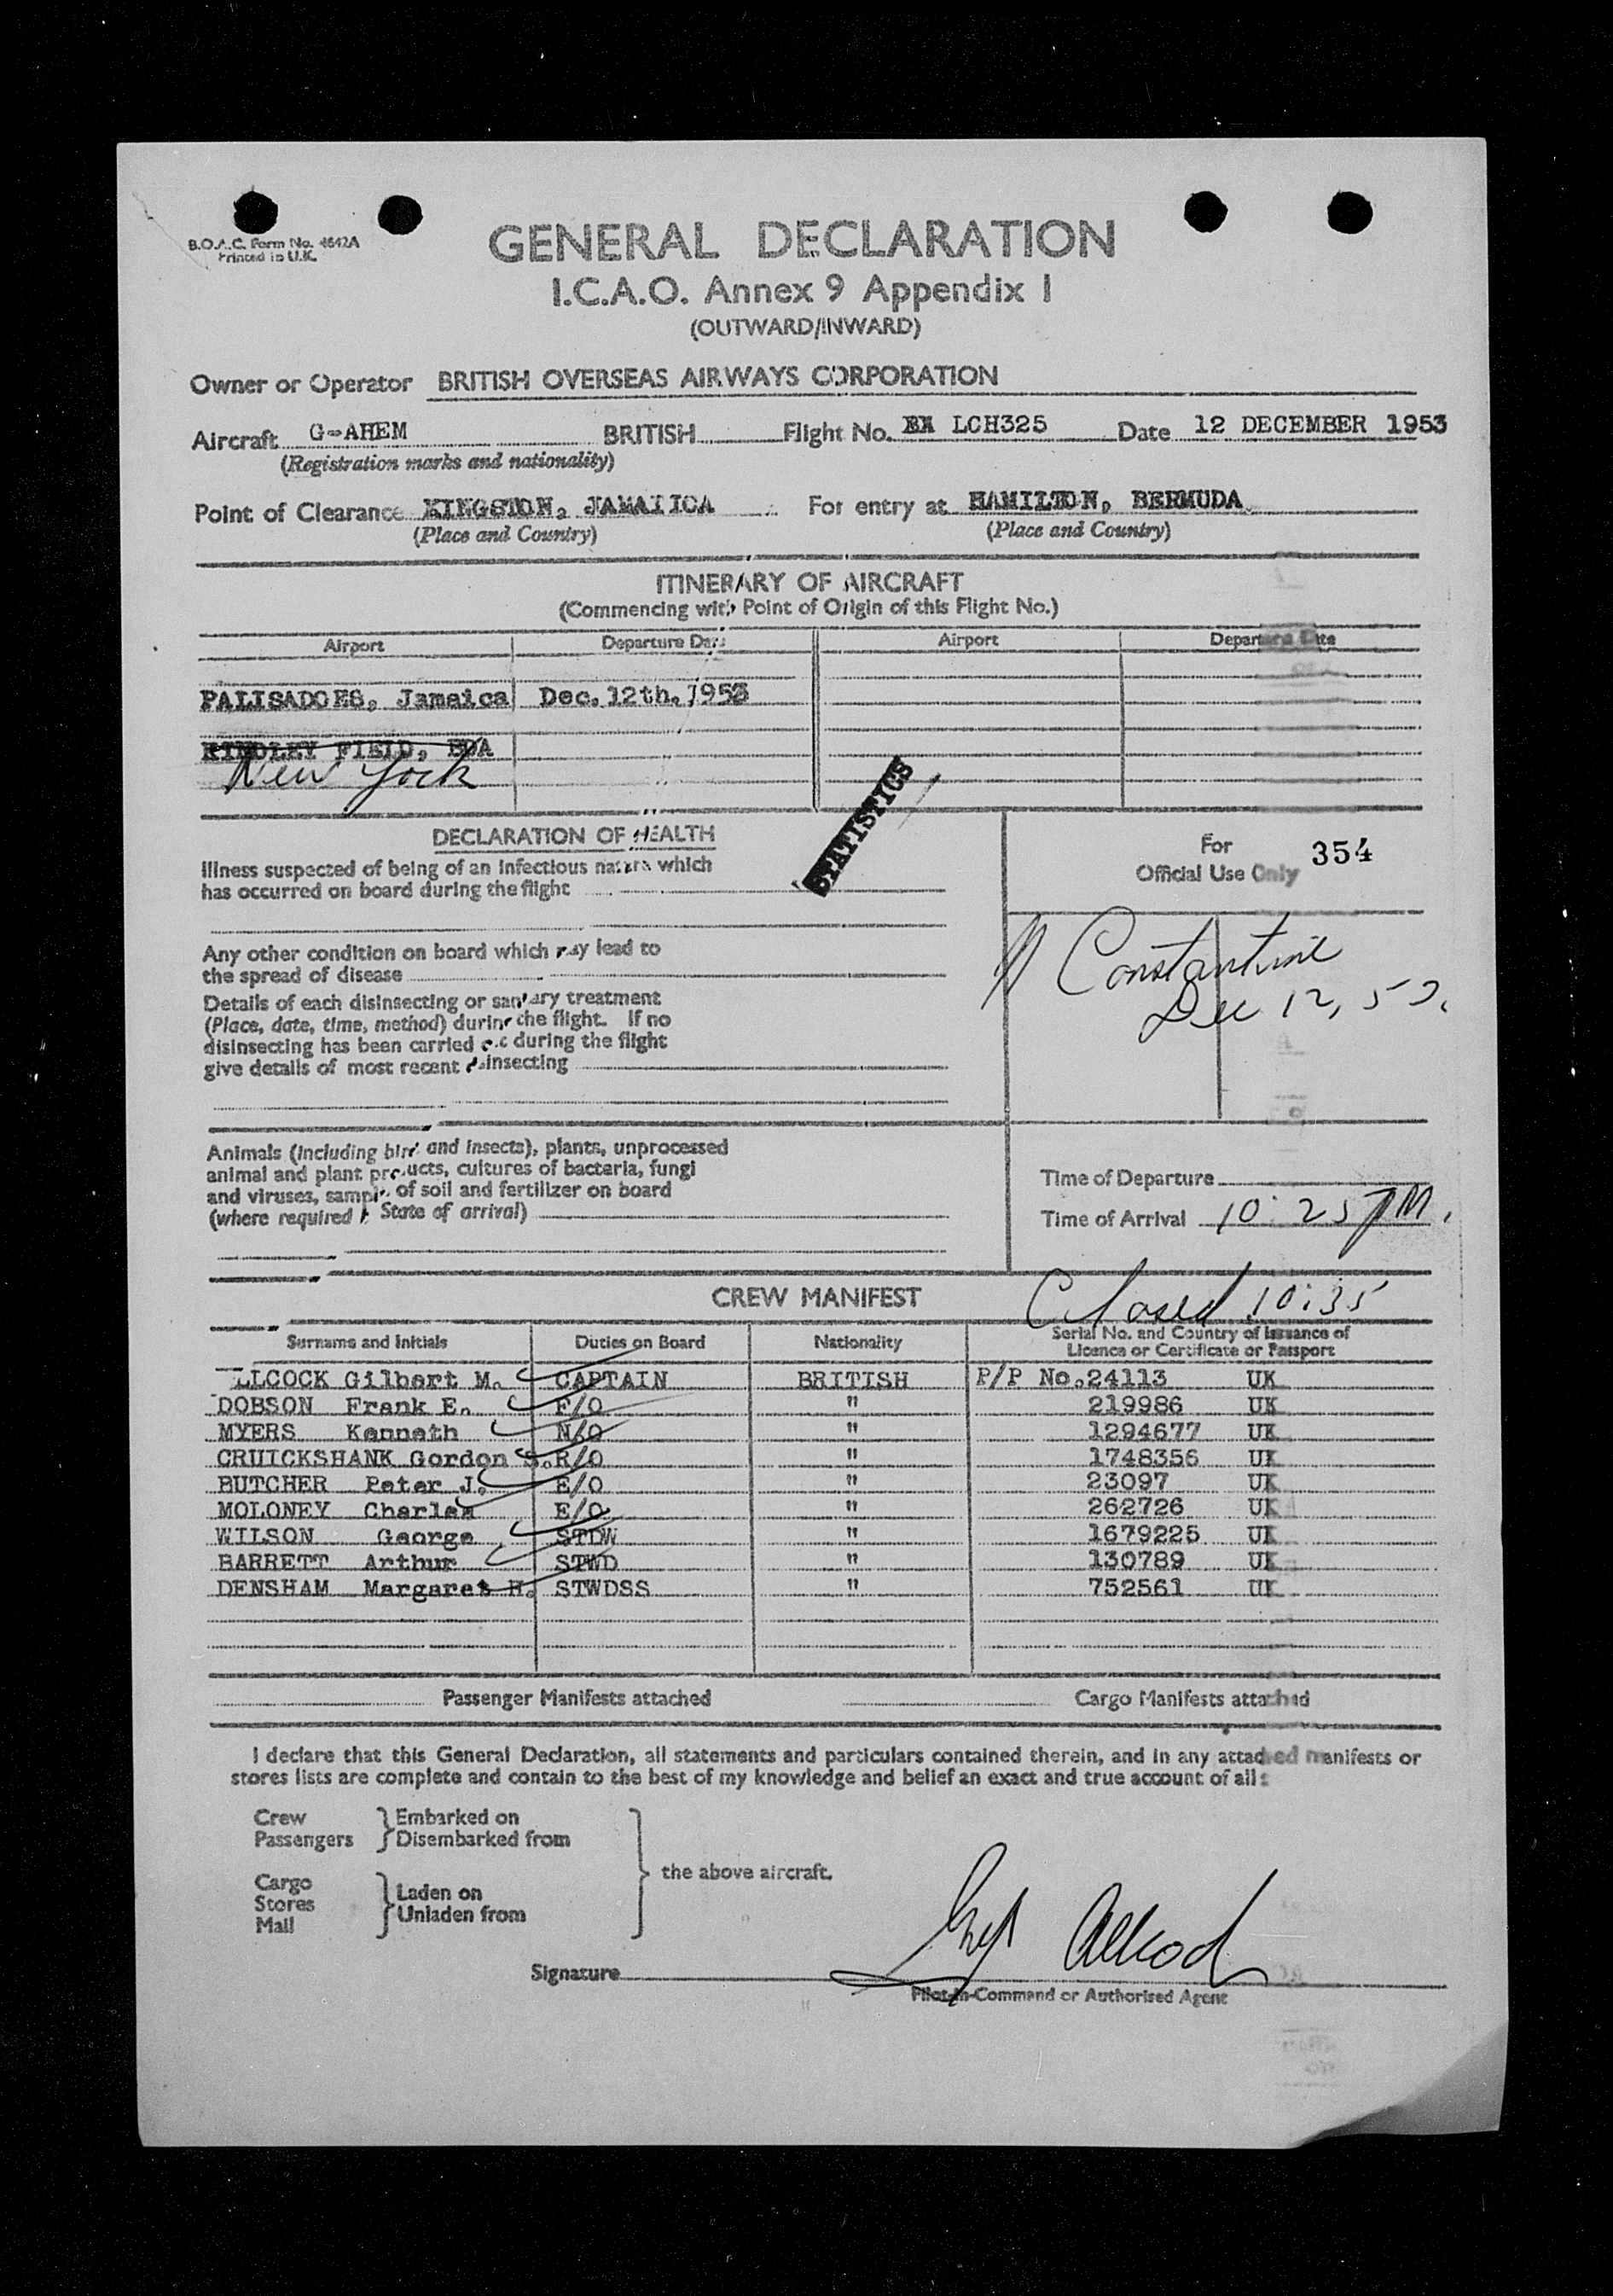 B.O.A.C. Form No. 4642A
Printed in U.K.
GENERAL DECLARATION
I.C.A.O. Annex 9 Appendix I
(OUTWARD/INWARD)
Owner or Operator BRITISH OVERSEAS AIRWAYS CORPORATION
Aircraft G-AHEM BRITISH Flight No. LCH325 Date 12 DECEMBER 1953
(Registration marks and nationality)
Point of Clearance KINGSTON, JAMAIICA For entry at HAMILTON, BERMUDA
(Place and Country) (Place and Country)
ITINERARY OF AIRCRAFT
(Commencing with Point of Origin of this Flight No.)
Airport Departure Date Airport Departure Date
PALISADOES, Jamaica Dec. 12th. 1953
KINDLEY FIELD, BDA
New York
STATISTICS
DECLARATION OF HEALTH
For
Official Use Only 354
Illness suspected of being of an infectious nature which
has occurred on board during the flight
Constantine
Dec 12, 53.
Any other condition on board which may lead to
the spread of disease
Details of each disinsecting or sanitary treatment
(Place, date, time, method) during the flight. If no
disinsecting has been carried out during the flight
give details of most recent disinsecting
Animals (including birds and insects), plants, unprocessed
animal and plant products, cultures of bacteria, fungi
and viruses, samples of soil and fertilizer on board
(where required by State of arrival)
Time of Departure
Time of Arrival 10:25 PM.
Closed 10:35
CREW MANIFEST
Surname and Initials Duties on Board Nationality Serial No. and Country of Issuance of
Licence or Certificate or Passport
LLCOCK Gilbert M. CAPTAIN BRITISH P/P No.24113 UK
DOBSON Frank E. F/O " 219986 UK
MYERS Kenneth N/O " 1294677 UK
CRUICKSHANK Gordon S. R/O " 1748356 UK
BUTCHER Peter J. E/O " 23097 UK
MOLONEY Charles E/O " 262726 UK
WILSON George STDW " 1679225 UK
BARRETT Arthur STWD " 130789 UK
DENSHAM Margaret H. STWDSS " 752561 UK
Passenger Manifests attached Cargo Manifests attached
I declare that this General Declaration, all statements and particulars contained therein, and in any attached manifests or
stores lists are complete and contain to the best of my knowledge and belief an exact and true account of all:
Crew
Passengers
Embarked on
Disembarked from
Cargo
Stores
Mail
Laden on
Unladen from
the above aircraft.
Signature
Pilot-in-Command or Authorised Agent